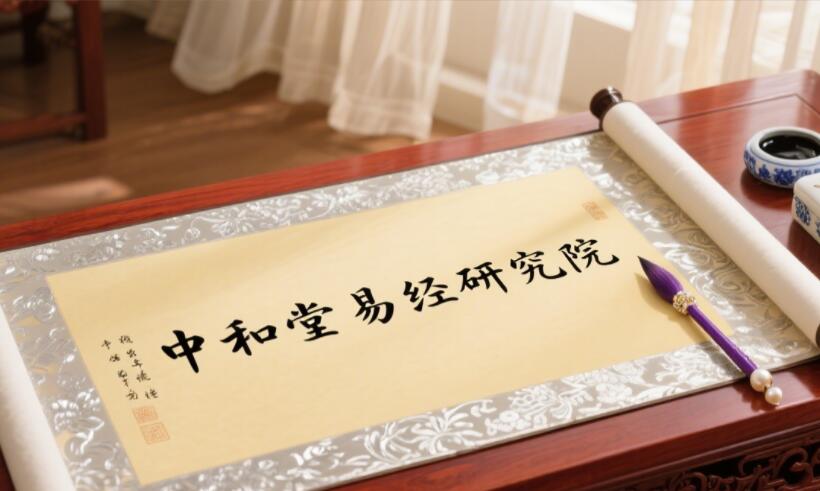 中和堂易经研究院